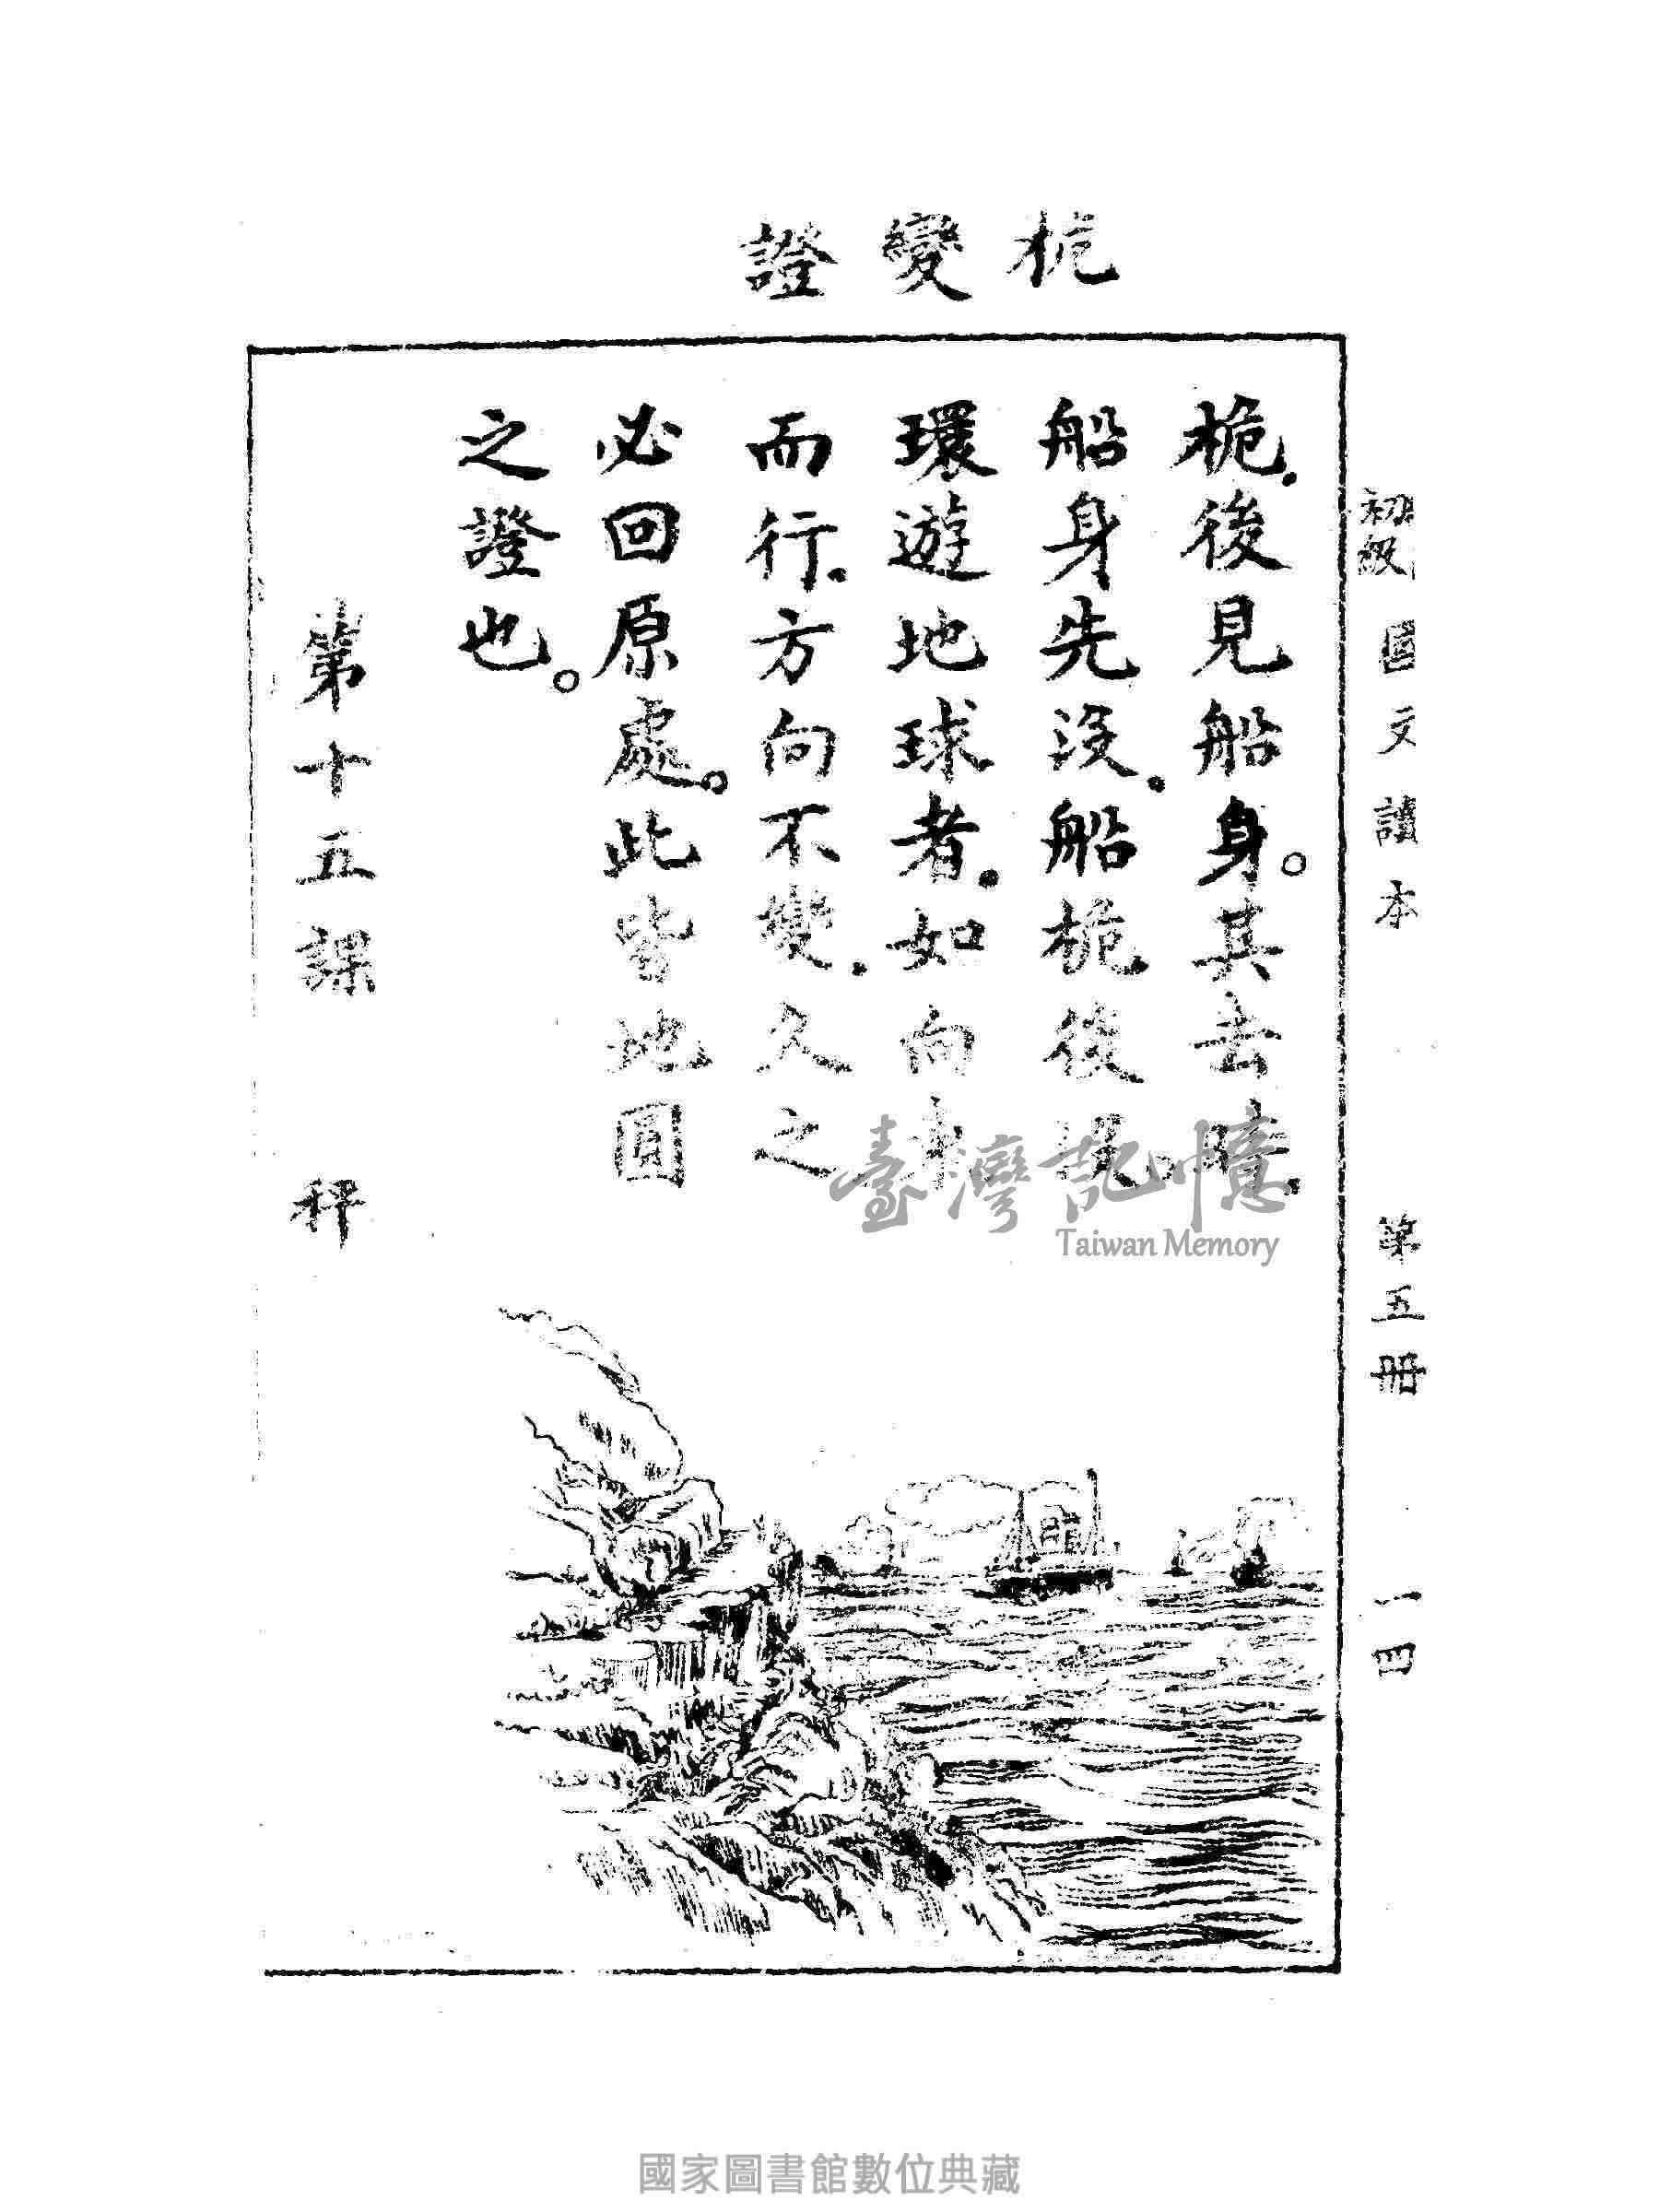 桅 變 證
初級 國文讀本 第五冊 一四
桅.後見船身。其去時.
船身先沒.船桅後沒。
環遊地球者.如向東
而行.方向不變.久之
必回原處。此皆地圓
之證也。
第十五課 秤
臺灣記憶
Taiwan Memory
國家圖書館數位典藏